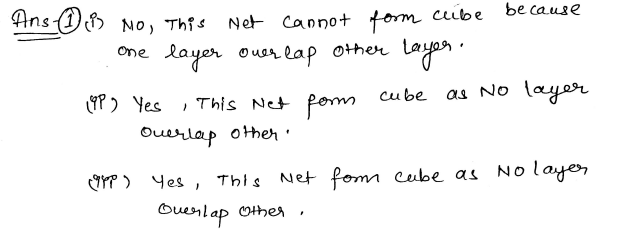 Ans-① (i) No, This Net cannot form cube because
one layer overlap other layer.
(ii) Yes, This Net form cube as No layer
Overlap other.
(iii) Yes, This Net form cube as No layer
Overlap other.